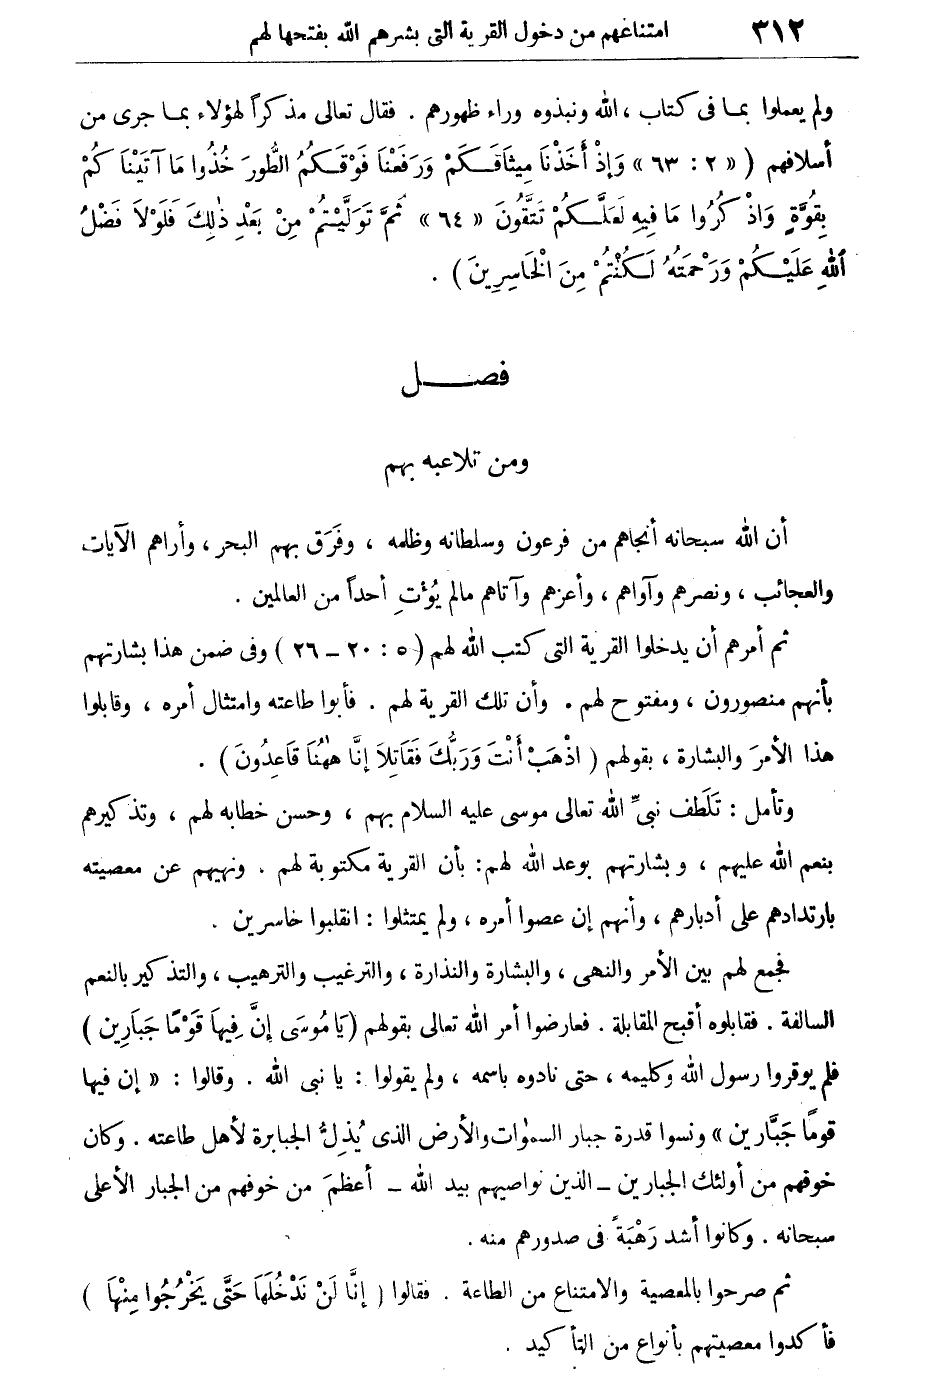 ٣١٢ امتناعهم من دخول القرية التى بشرهم الله بفتحها لهم
ولم يعملوا بما فى كتاب ، الله ونبذوه وراء ظهورهم . فقال تعالى مذكراً لهؤلاء بما جرى من
أسلافهم ( « ٢ : ٦٣ » وَإِذْ أَخَذْنَا مِيثَاقَكُمْ وَرَفَعْنَا فَوْقَكُمُ الطُّورَ خُذُوا مَا آتَيْنَا كُمْ
بِقُوَّةٍ وَاذْكُرُوا مَا فِيهِ لَعَلَّكُمْ تَتَّقُونَ « ٦٤ » ثُمَّ تَوَلَّيْتُمْ مِنْ بَعْدِ ذٰلِكَ فَلَوْلاَ فَضْلُ
اللهِ عَلَيْكُمْ وَرَحْمَتُهُ لَكُنْتُمْ مِنَ الْخَاسِرِينَ ) .
فصل
ومن تلاعبه بهم
أن الله سبحانه أنجاهم من فرعون وسلطانه وظلمه ، وفَرَق بهم البحر ، وأراهم الآيات
والعجائب ، ونصرهم وآواهم ، وأعزهم وآتاهم مالم يُؤْتِ أحداً من العالمين .
ثم أمرهم أن يدخلوا القرية التى كتب الله لهم ( ٥ : ٢٠ ــ ٢٦ ) وفى ضمن هذا بشارتهم
بأنهم منصورون ، ومفتوح لهم . وأن تلك القرية لهم . فأبوا طاعته وامتثال أمره ، وقابلوا
هذا الأمرَ والبشارة ، بقولهم ( اذْهَبْ أَنْتَ وَرَبُّكَ فَقَاتِلاَ إنَّا هٰهُنَا قَاعِدُونَ ) .
وتأمل : تَلَطف نبىِّ الله تعالى موسى عليه السلام بهم ، وحسن خطابه لهم ، وتذكيرهم
بنعم الله عليهم ، وبشارتهم بوعد الله لهم: بأن القرية مكتوبة لهم . ونهيهم عن معصيته
بارتدادهم على أدبارهم ، وأنهم إن عصوا أمره ، ولم يمتثلوا : انقلبوا خاسرين .
فجمع لهم بين الأمر والنهى ، والبشارة والنذارة ، والترغيب والترهيب ، والتذكير بالنعم
السالفة . فقابلوه أقبح المقابلة . فعارضوا أمر الله تعالى بقولهم ( يَا مُوسَى إنَّ فِيهَا قَوْمًا جَبَّارِين )
فلم يوقروا رسول الله وكليمه ، حتى نادوه باسمه ، ولم يقولوا : يا نبى الله . وقالوا : « إن فيها
قومًا جَبَّارين » ونسوا قدرة جبار السمٰوات والأرض الذى يُذِلُّ الجبابرة لأهل طاعته . وكان
خوفهم من أولئك الجبارين ــ الذين نواصيهم بيد الله ــ أعظمَ من خوفهم من الجبار الأعلى
سبحانه . وكانوا أشد رَهْبَةً فى صدورهم منه .
ثم صرحوا بالمعصية والامتناع من الطاعة . فقالوا ( إنَّا لَنْ نَدْخُلَهَا حَتَّى يَخْرُجُوا مِنْهَا )
فأكدوا معصيتهم بأنواع من التأكيد .